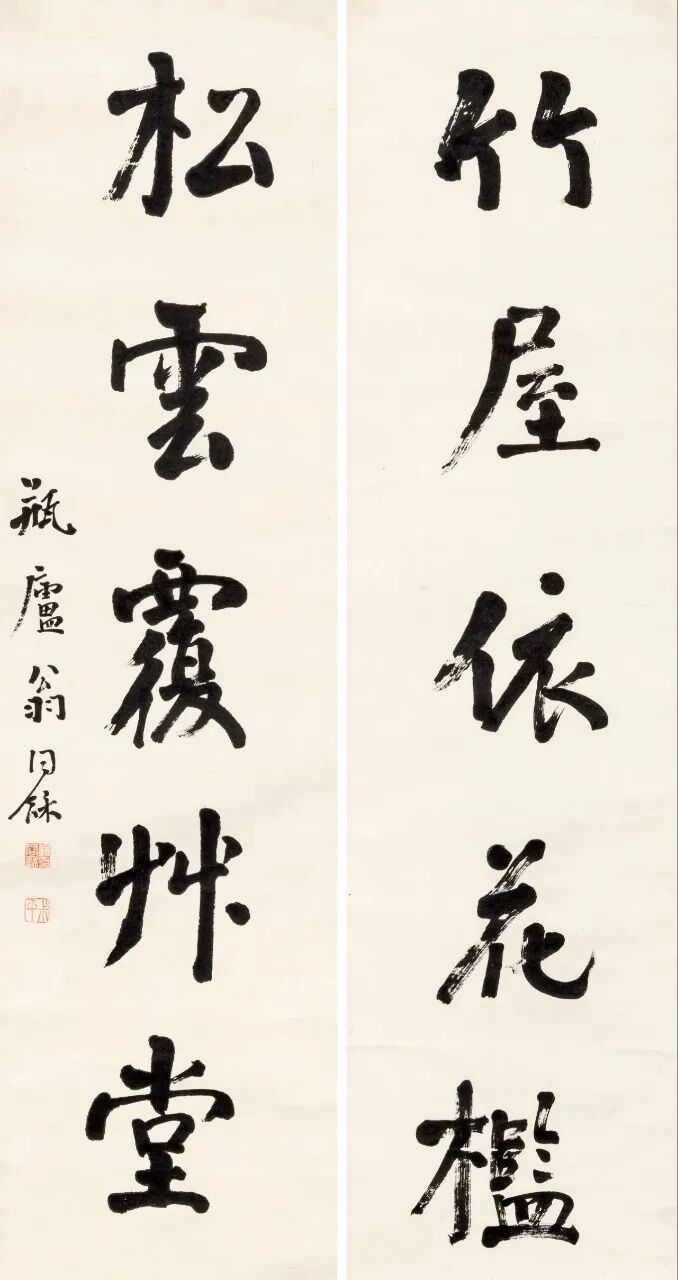 竹屋依花檻
松雲覆艸堂
瓶廬翁同龢